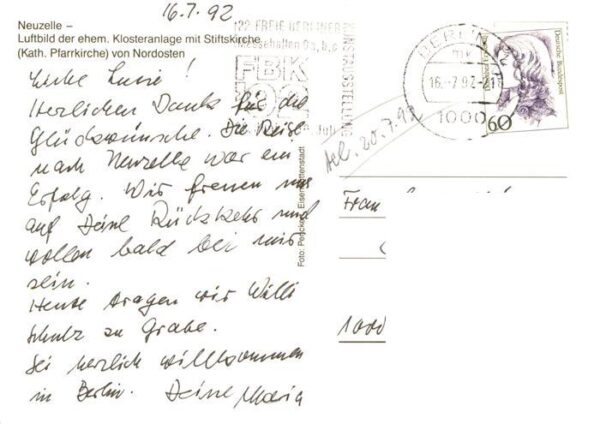 16.7.92
Neuzelle –
Luftbild der ehem. Klosteranlage mit Stiftskirche
(Kath. Pfarrkirche) von Nordosten
Liebe Lucie!
Herzlichen Dank für die
Glückwünsche. Die Reise
nach Neuzelle war ein
Erfolg. Wir freuen uns
auf Deine Rückkehr und
wollen bald bei mir
sein.
Heute tragen wir Willi
Schulz zu Grabe.
Sei herzlich willkommen
in Berlin. Deine Maria
Eisenhüttenstadt
22. FREIE BERLINER
KUNSTAUSSTELLUNG
FBK
BERLIN
16.-7.92
1000
Deutsche Bundespost
60
tel. 20.7.92
Frau
1000